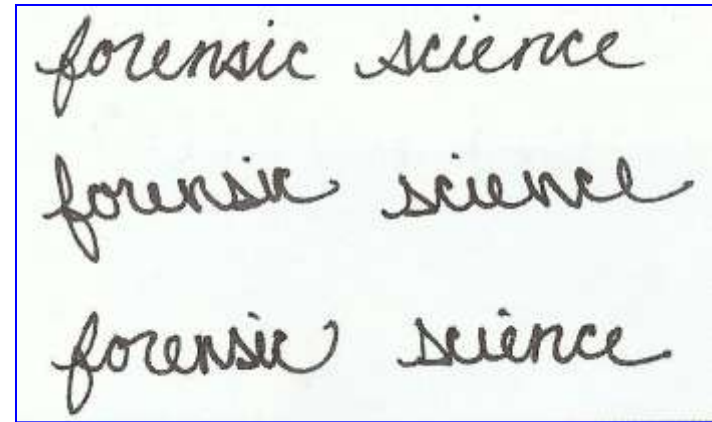 forensic science
forensic science
forensic science